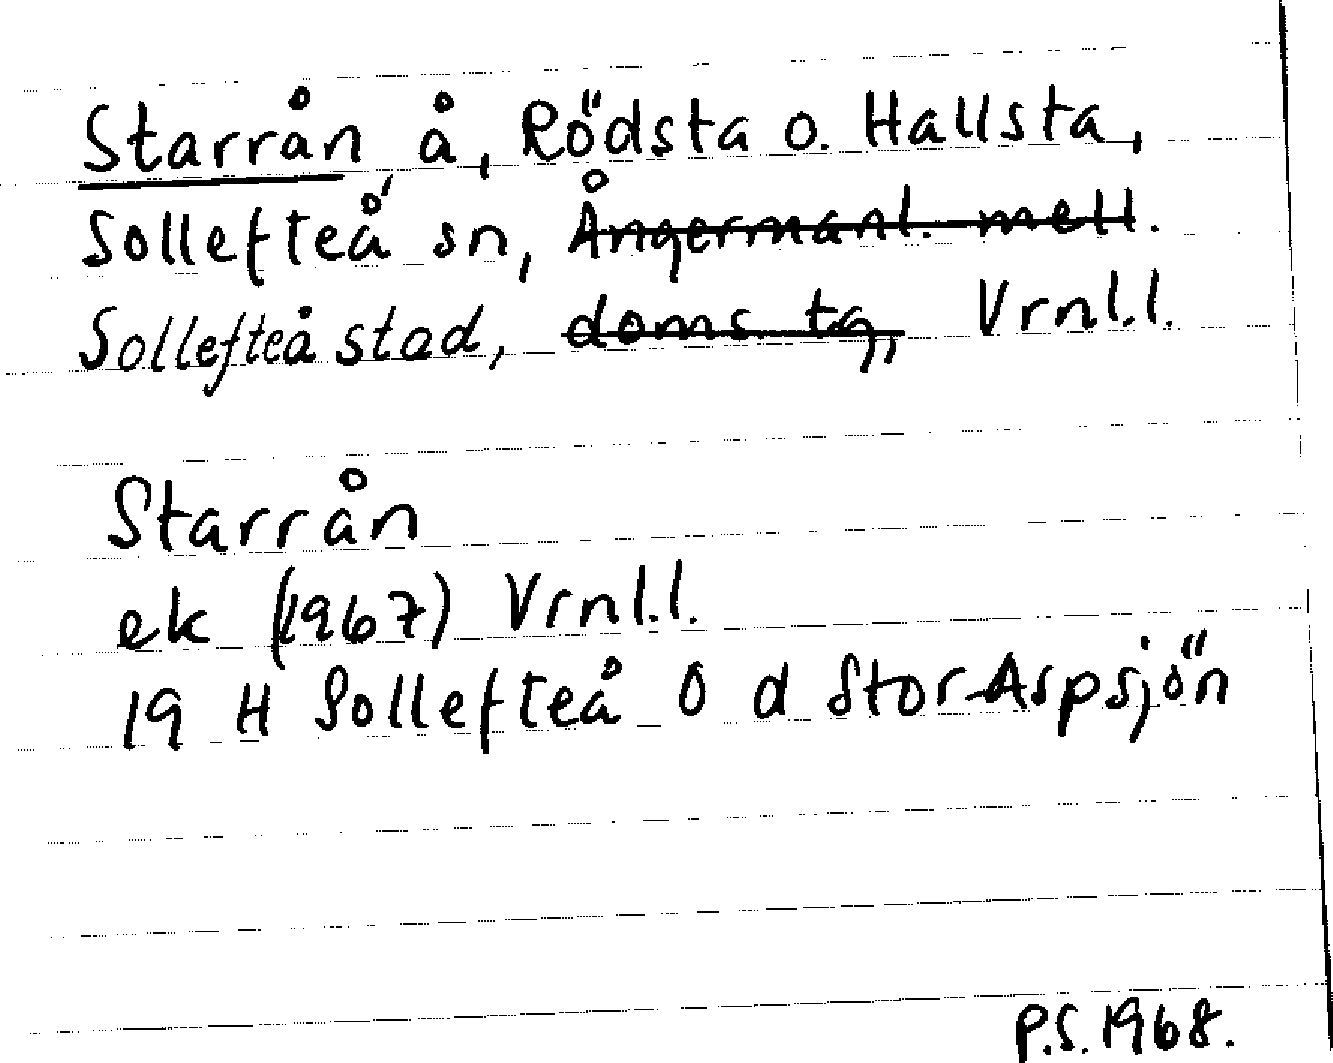 Starrån å, Rödsta o. Hallsta,
Sollefteå sn, Ångermanl. mell.
Sollefteå stad, doms. tg, Vrnl.l.
Starrån
ek (1967) Vrnl.l.
19 H Sollefteå O d Stor-Aspsjön
P.S. 1968.